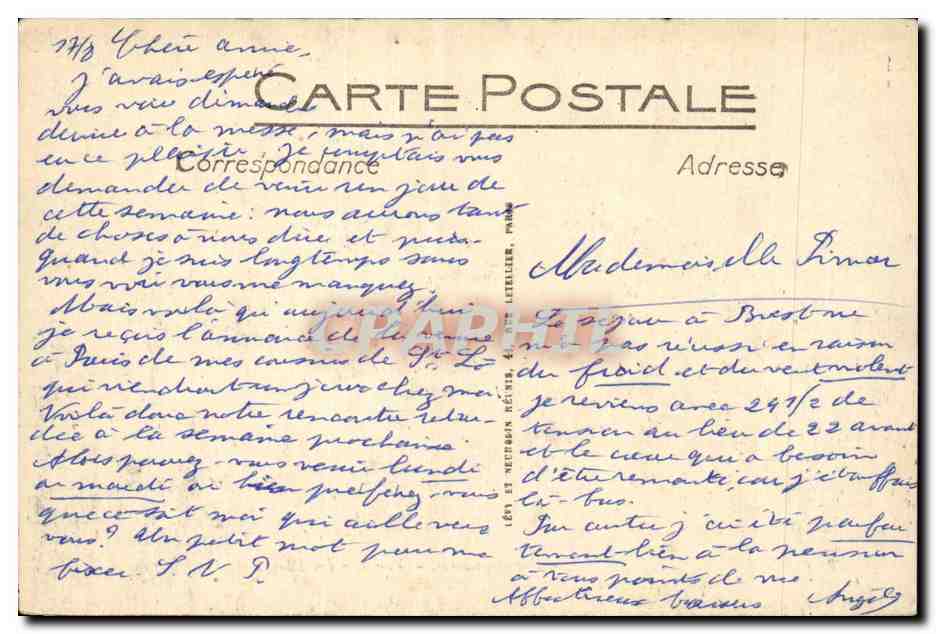 17/8 Chère amie,
J'avais espéré
vous voir dimanche
dernier à la messe, mais n'ai pas
eu ce plaisir. Je comptais vous
demander de venir un jour de
cette semaine : nous aurons tant
de choses à nous dire et puis
quand je suis longtemps sans
vous voir vous me manquez.
Mais voilà qu'aujourd'hui
je reçois l'annonce de la venue
à Paris de mes cousins de St. Lô
qui viendront un jour chez moi
Voilà donc notre rencontre retar-
dée à la semaine prochaine
Alors pouvez-vous venir lundi
ou mardi ou bien préférez-vous
que ce soit moi qui aille vers
vous? Un petit mot pour me
fixer S. V. P.
CARTE POSTALE
Correspondance
Adresse
LÉVY ET NEURDEIN RÉUNIS, 44, RUE LETELLIER, PARIS
CPAPHIL
Mademoiselle
Le séjour à Brest ne
m'a pas réussi en raison
du froid et du vent violent
je reviens avec 24 1/2 de
tension au lieu de 22 avant
et le cœur qui a besoin
d'être remonté, car j'étouffais
là-bas.
Par contre j'ai été parfai
tement bien à la pension
à tous points de vue
Affectueux baisers Angèle